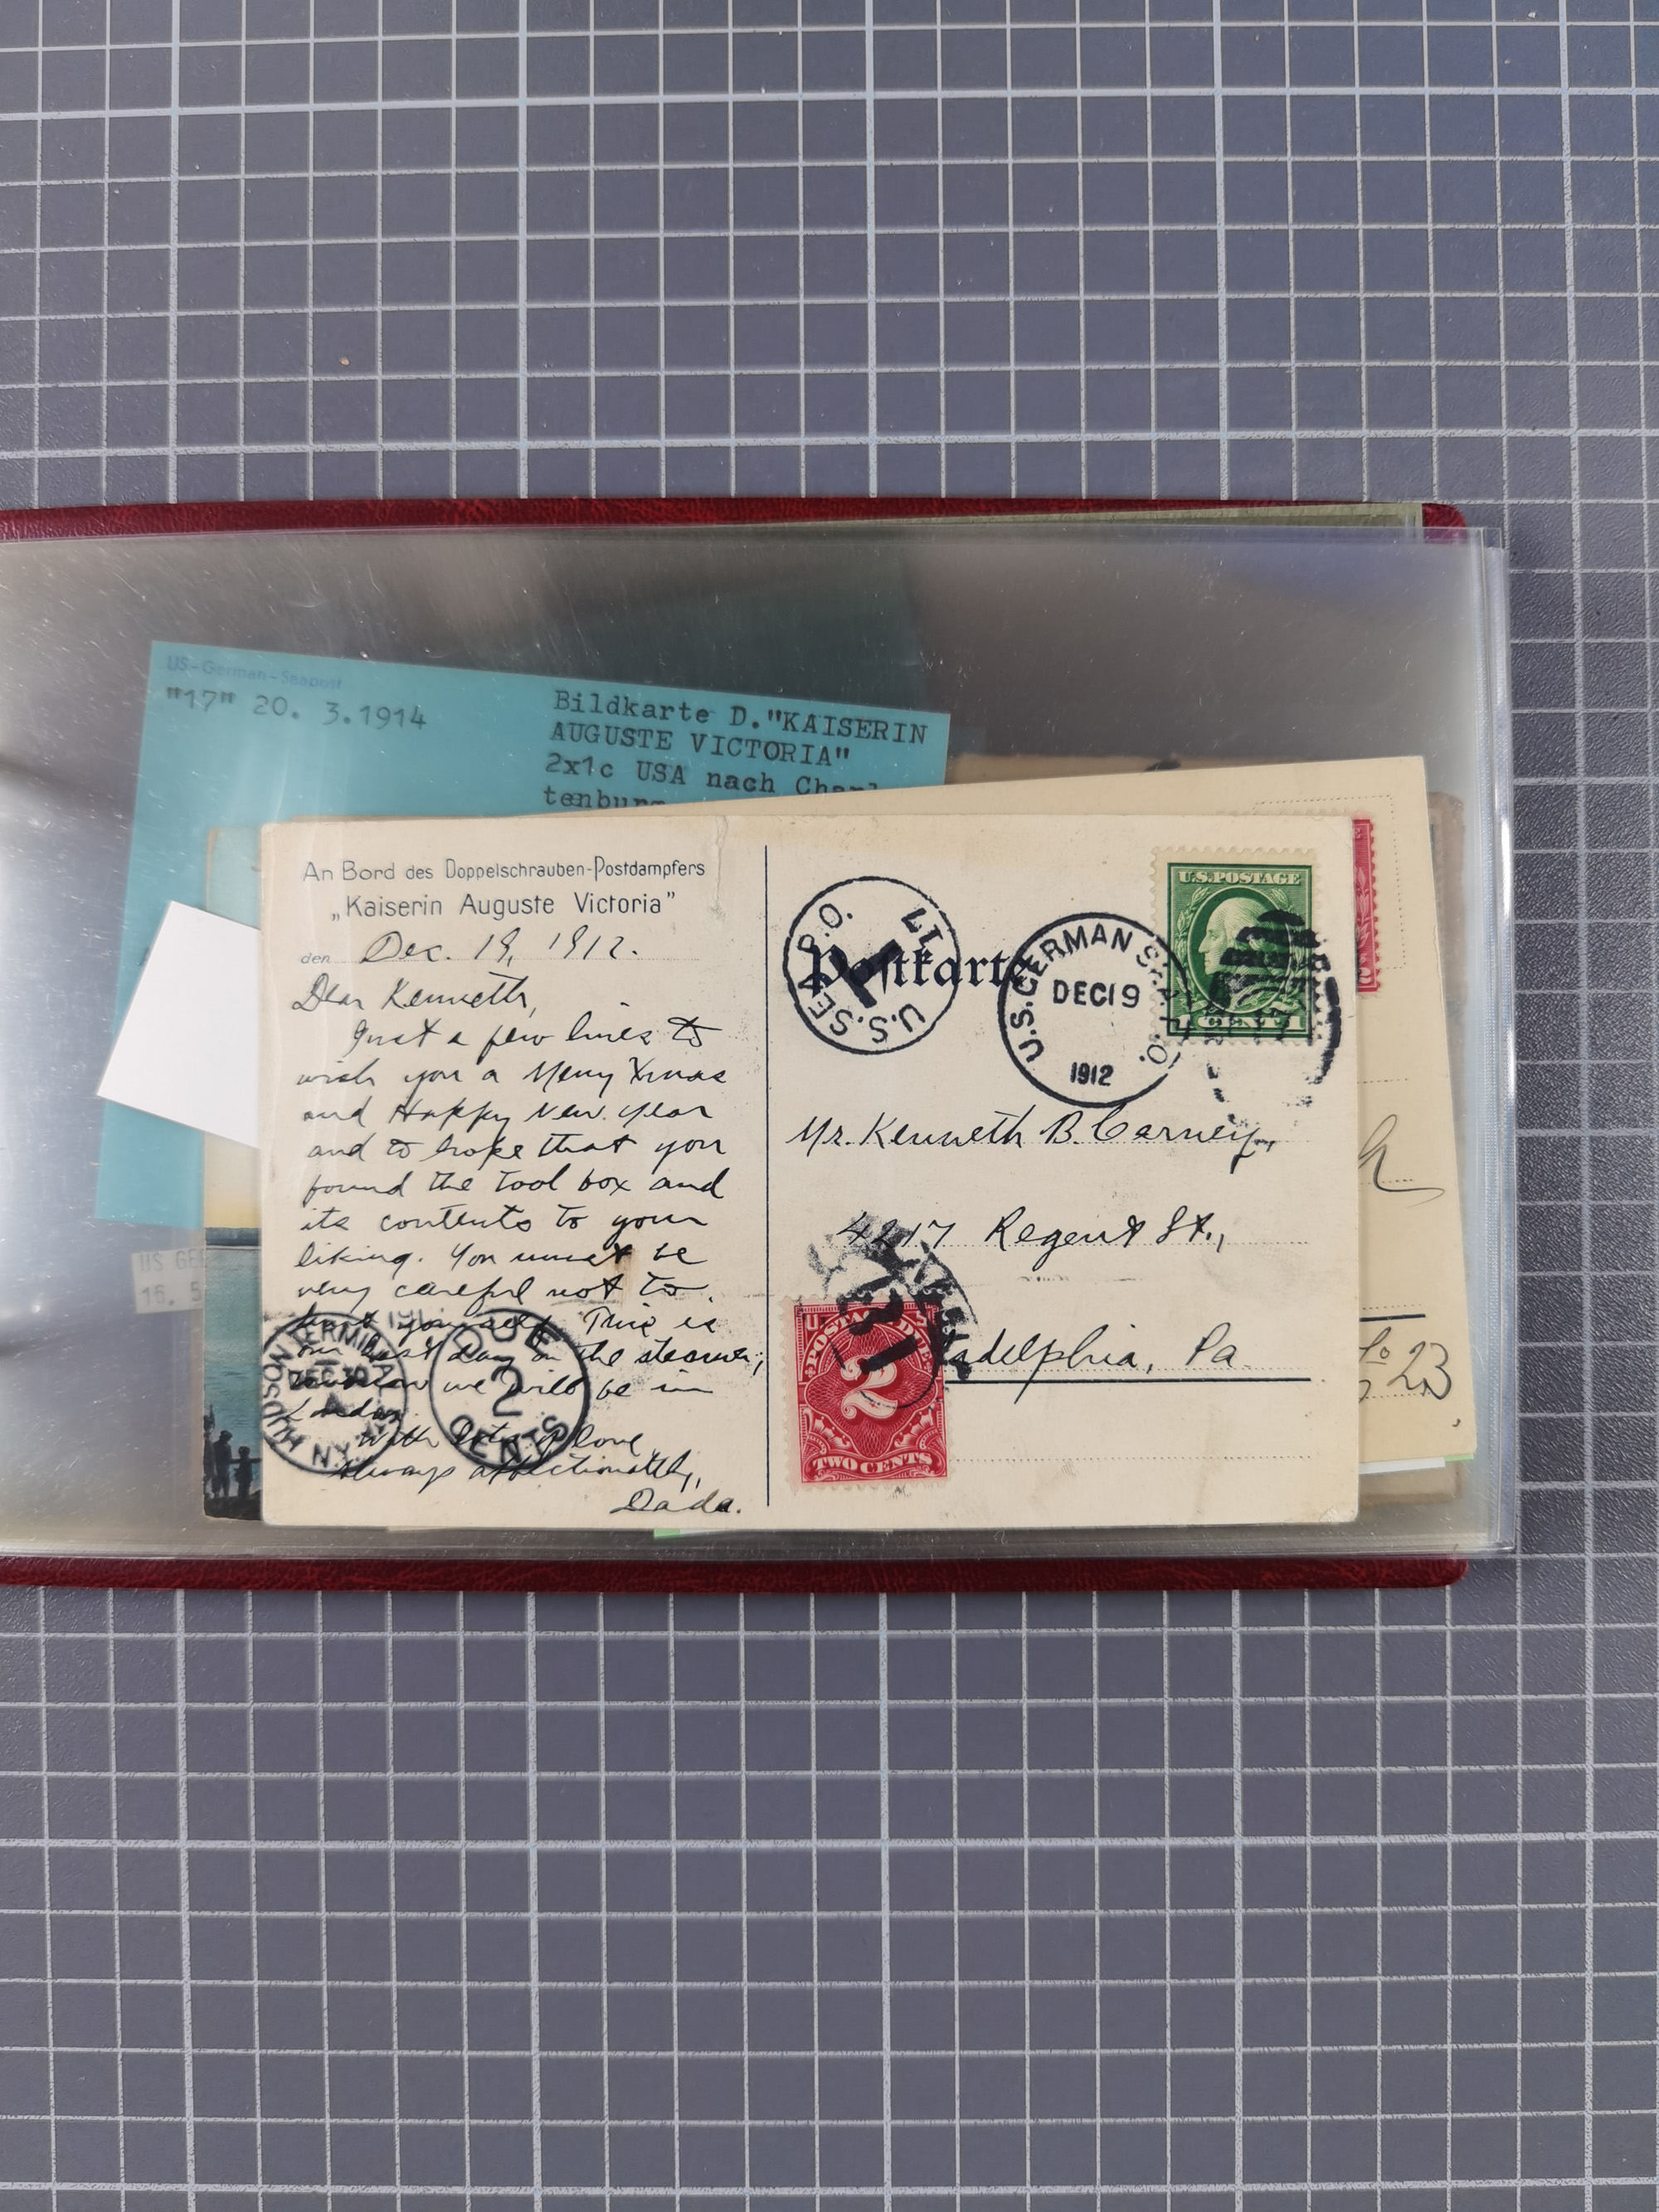 US-German-Seapost
"17" 20. 3.1914
Bildkarte D."KAISERIN
AUGUSTE VICTORIA"
2x1c USA nach Charl
tenburg
US GE
16. 5
An Bord des Doppelschrauben-Postdampfers
„Kaiserin Auguste Victoria"
den Dec. 19, 1912.
Dear Kenneth,
Just a few lines to
wish you a Merry Xmas
and Happy New Year
and to hope that you
found the tool box and
its contents to your
liking. You must be
very careful not to
hurt yourself. This is
our last day on the steamer,
we will be in
London.
With lots of love
Always affectionately,
Dada.
HUDSON TERMINAL
DEC 30
N.Y.
DUE
2
CENTS
Postkarte
U.S. SEA P.O.
17
U.S. GERMAN SEA P.O.
DEC 19
1912
U.S. POSTAGE
1 CENT 1
Mr. Kenneth B. Carney,
4217 Regent St.,
adelphia, Pa.
POSTAGE DUE
2
TWO CENTS
23